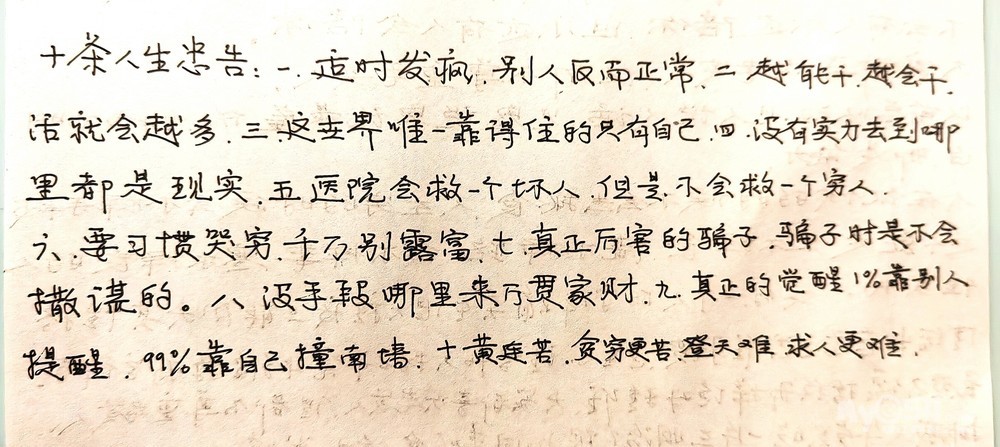 十条人生忠告:一.适时发疯.别人反而正常.二越能干.越会干.
活就会越多.三.这世界唯一靠得住的只有自己.四.没有实力去到哪
里都是现实.五医院会救一个坏人.但是.不会救一个穷人.
六.要习惯哭穷.千万别露富.七.真正厉害的骗子.骗子时是不会
撒谎的。八没手段哪里来万贯家财.九.真正的觉醒1%靠别人
提醒.99%靠自己撞南墙.十黄连苦.贫穷更苦.登天难求人更难.